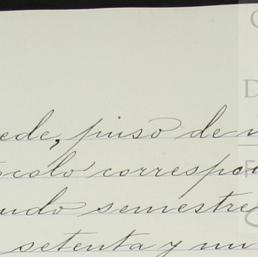 ede, piso de
ocolo correspon
undo semestre
setenta y nu